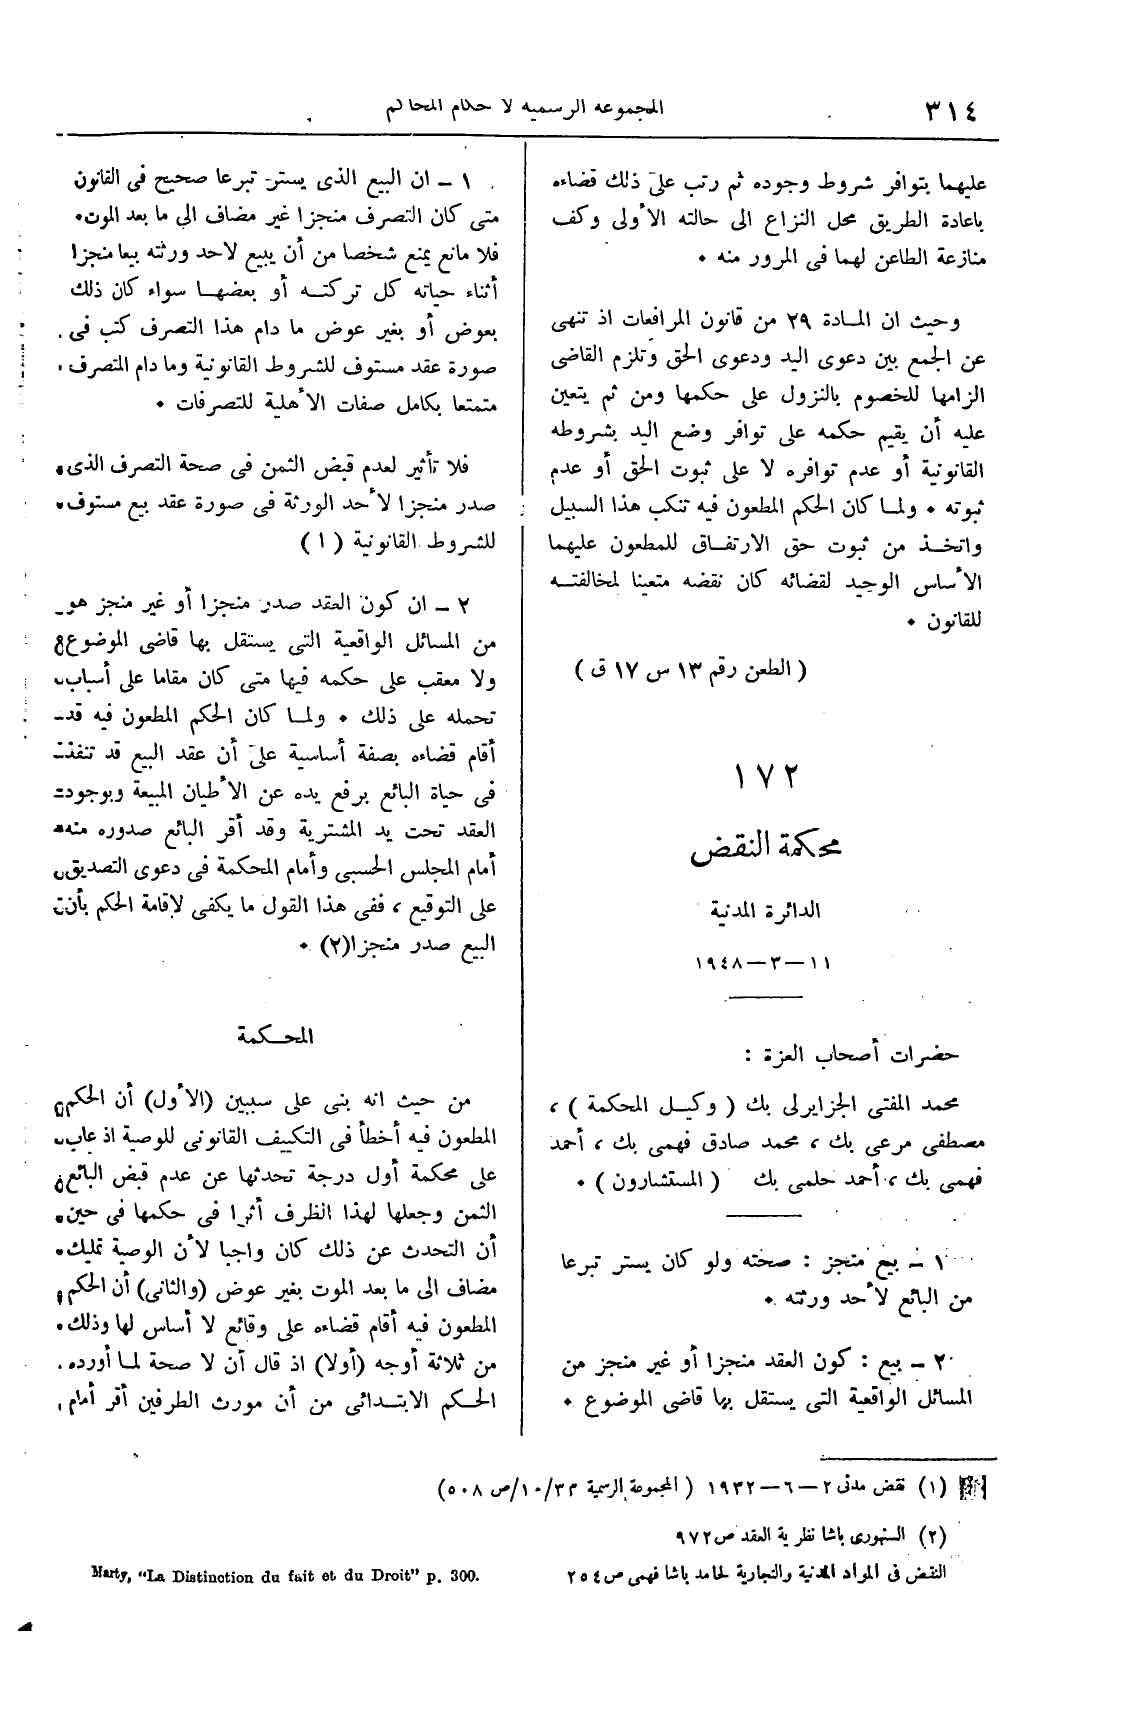 ٣١٤
المجموعة الرسمية لأحكام المحاكم
عليهما بتوافر شروط وجوده ثم رتب على ذلك قضاءه
باعادة الطريق محل النزاع الى حالته الأولى وكف
منازعة الطاعن لهما فى المرور منه .
وحيث ان المادة ٢٩ من قانون المرافعات اذ تنهى
عن الجمع بين دعوى اليد ودعوى الحق وتلزم القاضى
الزامها للخصوم بالنزول على حكمها ومن ثم يتعين
عليه أن يقيم حكمه على توافر وضع اليد بشروطه
القانونية أو عدم توافره لا على ثبوت الحق أو عدم
ثبوته . ولما كان الحكم المطعون فيه تنكب هذا السبيل
واتخذ من ثبوت حق الارتفاق للمطعون عليهما
الأساس الوحيد لقضائه كان نقضه متعينا لمخالفته
للقانون .
( الطعن رقم ١٣ س ١٧ ق )
١٧٢
محكمة النقض
الدائرة المدنية
١١ — ٣ — ١٩٤٨
حضرات أصحاب العزة :
محمد المفتى الجزايرلى بك ( وكيل المحكمة ) ،
مصطفى مرعى بك ، محمد صادق فهمى بك ، أحمد
فهمى بك ، أحمد حلمى بك ( المستشارون ) .
١ — بيع منجز : صحته ولو كان يستر تبرعا
من البائع لأحد ورثته .
٢ — بيع : كون العقد منجزا أو غير منجز من
المسائل الواقعية التى يستقل بها قاضى الموضوع .
١ — ان البيع الذى يستر تبرعا صحيح فى القانون
متى كان التصرف منجزا غير مضاف الى ما بعد الموت .
فلا مانع يمنع شخصا من أن يبيع لأحد ورثته بيعا منجزا
أثناء حياته كل تركته أو بعضها سواء كان ذلك
بعوض أو بغير عوض ما دام هذا التصرف كتب فى
صورة عقد مستوف للشروط القانونية وما دام المتصرف
متمتعا بكامل صفات الأهلية للتصرفات .
فلا تأثير لعدم قبض الثمن فى صحة التصرف الذى
صدر منجزا لأحد الورثة فى صورة عقد بيع مستوف
للشروط القانونية (١)
٢ — ان كون العقد صدر منجزا أو غير منجز هو
من المسائل الواقعية التى يستقل بها قاضى الموضوع
ولا معقب على حكمه فيها متى كان مقاما على أسباب
تحمله على ذلك . ولما كان الحكم المطعون فيه قد
أقام قضاءه بصفة أساسية على أن عقد البيع قد تنفذ
فى حياة البائع برفع يده عن الأطيان المبيعة وبوجود
العقد تحت يد المشترية وقد أقر البائع صدوره منه
أمام المجلس الحسبى وأمام المحكمة فى دعوى التصديق
على التوقيع ، ففى هذا القول ما يكفى لاقامة الحكم بأن
البيع صدر منجزا(٢) .
المحكمة
من حيث انه بنى على سببين (الأول) أن الحكم
المطعون فيه أخطأ فى التكييف القانونى للوصية اذ عاب
على محكمة أول درجة تحدثها عن عدم قبض البائع
الثمن وجعلها لهذا الظرف أثرا فى حكمها فى حين
أن التحدث عن ذلك كان واجبا لأن الوصية تمليك
مضاف الى ما بعد الموت بغير عوض (والثانى) أن الحكم
المطعون فيه أقام قضاءه على وقائع لا أساس لها وذلك
من ثلاثة أوجه (أولا) اذ قال أن لا صحة لما أورده
الحكم الابتدائى من أن مورث الطرفين أقر أمام
(١) نقض مدنى ٢ — ٦ — ١٩٣٢ ( المجموعة الرسمية ٣٣/١٠/ص ٥٠٨)
(٢) السنهورى باشا نظرية العقد ص ٩٧٢
النقض فى المواد المدنية والتجارية لحامد باشا فهمى ص ٢٥٤
Marty, "La Distinction du fait et du Droit" p. 300.